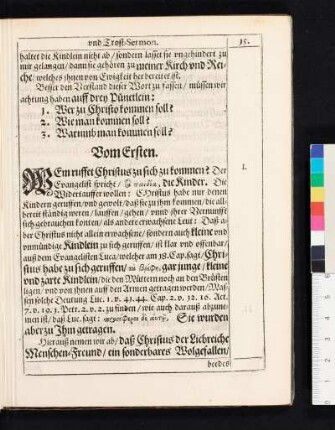 vnd Trost-Sermon. 15.
haltet die Kindlein nicht ab / sondern lasset sie vngehindert zu
mir gelangen / dann sie gehören zu meiner Kirch vnd Rei-
che / welches ihnen von Ewigkeit her bereitet ist.
Besser den Verstand dieser Wort zu fassen / müssen wir
achtung haben auff drey Pünctlein:
1. Wer zu Christo kommen soll?
2. Wie man kommen soll?
3. Warumb man kommen soll?
Vom Ersten.
I.
WEm ruffet Christus zu sich zu kommen? Der
Evangelist spricht / die Kinder. Die
Widertauffer wollen: Christus habe nur denen
Kindern geruffen / vnd gewolt / daß sie zu ihm kommen / die all-
bereit ständig weren / lauffen / gehen / vnnd ihrer Vernunfft
sich gebrauchen konten / als andre erwachsene Leut: Daß a-
ber Christus nicht allein erwachsene / sondern auch kleine vnd
vnmündige Kindlein zu sich geruffen / ist klar vnd offenbar /
auß dem Evangelisten Luca / welcher am 18. Cap. sagt / Chri-
stus habe zu sich geruffen / gar junge / kleine
vnd zarte Kindlein / die den Müttern noch an den Brüsten
ligen / vnd von ihnen auff den Armen getragen werden / Mas-
sen solche Deutung Luc. 1. v. 41. 44. Cap. 2. v. 12. 16. Act.
7. v. 19. 1. Pett. 2. v. 2. zu finden / wie auch darauß abzune-
men ist / daß Luc. sagt: Sie wurden
aber zu Ihm getragen.
Hierauß nemen wir ab / daß Christus der Liebreiche
Menschen-Freund / ein sonderbares Wolgefallen /
beedes